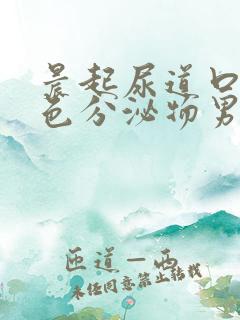 晨起尿道口
色分泌物男
匝道－西
未经同意禁止转载